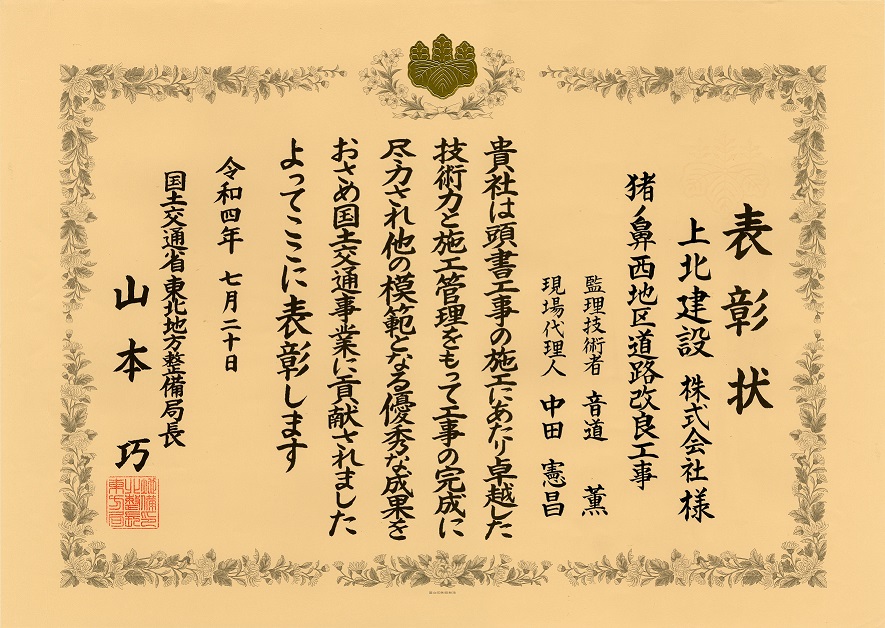 表彰状
上北建設 株式会社 様
猪ノ鼻西地区道路改良工事
監理技術者 音道 薫
現場代理人 中田 憲昌
貴社は頭書工事の施工にあたり卓越した
技術力と施工管理をもって工事の完成に
尽力され他の模範となる優秀な成果を
おさめ国土交通事業に貢献されました
よってここに表彰します
令和四年 七月二十日
国土交通省 東北地方整備局長
山本 巧